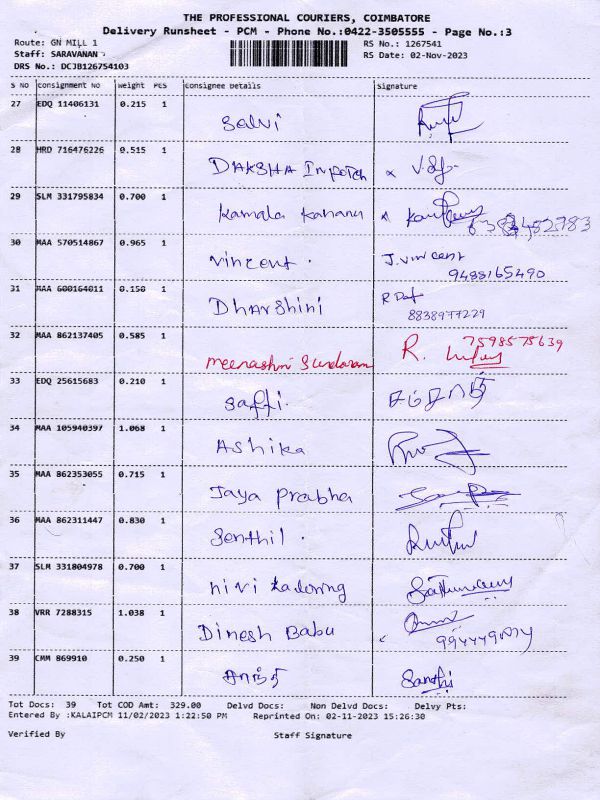 THE PROFESSIONAL COURIERS, COIMBATORE
Delivery Runsheet - PCM - Phone No.:0422-3505555 - Page No.:3
Route: GN MILL 1 RS No.: 1267541
Staff: SARAVANAN RS Date: 02-Nov-2023
DRS No.: DCJB126754103
S NO Consignment No Weight PCS Consignee Details Signature
27 EDQ 11406131 0.215 1
Selvi
28 HRD 716476226 0.515 1
DAKSHA
29 SLM 331795834 0.700 1
Kamala Kannan
30 MAA 570514867 0.965 1
vincent. J. vincent
9488165490
31 MAA 600164011 0.150 1
Dharshini
8838977229
32 MAA 862137405 0.585 1
7598575639
meenashri Sundaram R.
33 EDQ 25615683 0.210 1
Saffi.
34 MAA 105940397 1.068 1
Ashika
35 MAA 862353055 0.715 1
Jaya Prabha
36 MAA 862311447 0.830 1
Senthil.
37 SLM 331804978 0.700 1
38 VRR 7288315 1.038 1
Dinesh Babu
39 CMM 869910 0.250 1
சாந்தி Santhi
Tot Docs: 39 Tot COD Amt: 329.00 Delvd Docs: Non Delvd Docs: Delvy Pts:
Entered By :KALAIPCM 11/02/2023 1:22:50 PM Reprinted On: 02-11-2023 15:26:30
Verified By Staff Signature